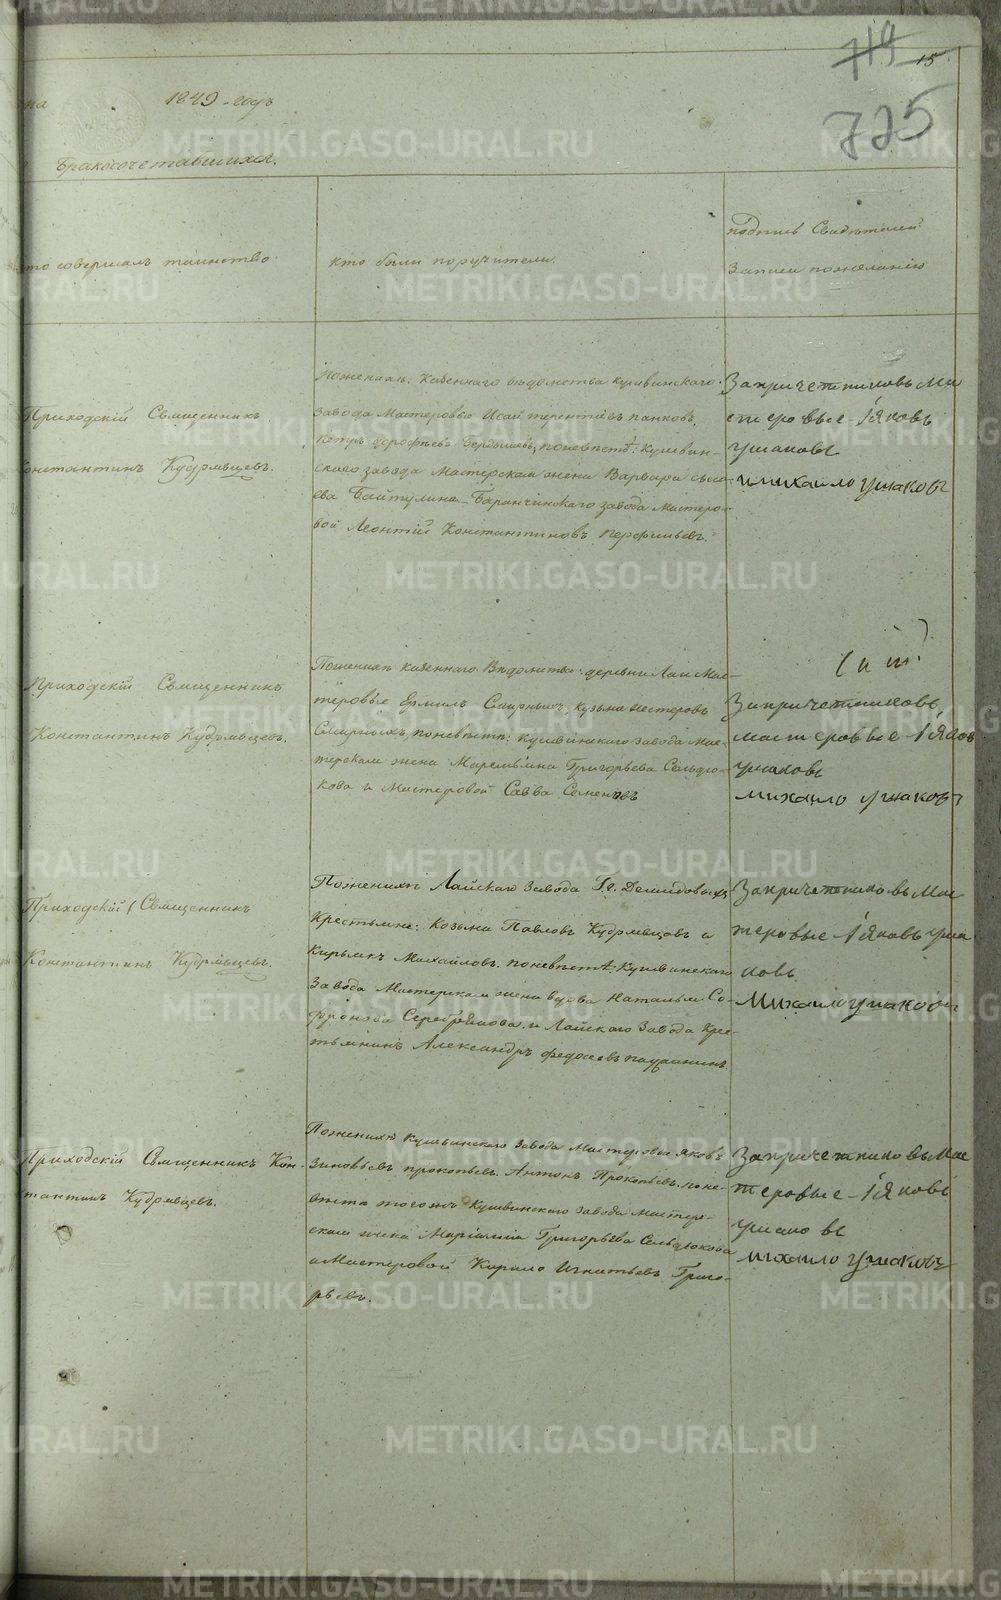 719 15
725
на 1849 годъ
Бракосочетавшихся.
кто совершалъ таинство.
кто были поручители.
подпись Свидѣтелей
Записи пожеланію
Приходскій Священникъ
Константинъ Кудрявцевъ.
Поженихѣ: Казеннаго вѣдомства Кушвинскаго
завода Мастеровые Исай терентіевъ панковъ,
петръ дорофѣевъ Бердышевъ, поневѣстѣ: Кушвин-
скаго завода Мастерская жена Варвара
Байтулина Баранчинскаго завода Мастеро-
вой Леонтій Константиновъ перфильевъ.
Запричетниковъ Ма
стеровые Іяковъ
ушаковъ
и михайло ушаковъ
Приходскій Священникъ
Константинъ Кудрявцевъ.
Поженихѣ казеннаго Вѣдомства: деревни Лаи Мас-
теровые Ермилъ Смирныхъ, кузьма нестеровъ
Смирныхъ, поневѣстѣ: кушвинскаго завода Мас-
терская жена Маремьяна Григорьева Сельдю-
кова и Мастеровой Савва Семеновъ
Запричетниковъ
мастеровые Іяков
ушаковъ
михайло ушаковъ
Приходскій Священникъ
Константинъ Кудрявцевъ.
Поженихѣ Лайскаго завода Гг. Демидовыхъ
Крестьяне: Козьма Павловъ Кудрявцовъ и
Михайловъ. поневѣстѣ: Кушвинскаго
Завода Мастерская жена вдова Наталья Со-
фронова Серебрякова и Лайскаго Завода Кре-
стьянинъ Александръ федосеевъ
Запричетниковъ Мас
теровые Іяковъ уша
ковъ
Михайло ушаковъ
Приходскій Священникъ Кон-
стантинъ Кудрявцевъ.
Поженихѣ Кушвинскаго Завода Мастеровые яковъ
Зиновьевъ прокопьевъ. Антонъ Прокопьевъ. поне-
вѣстѣ тогожъ Кушвинскаго завода Мастер-
ская жена Григорьева Сельдюкова
и Мастеровой Кирило Игнатьевъ Григо-
рьевъ.
Запричетниковъ Мас
теровые Іяковъ
ушаковъ
михайло ушаковъ
METRIKI.GASO-URAL.RU